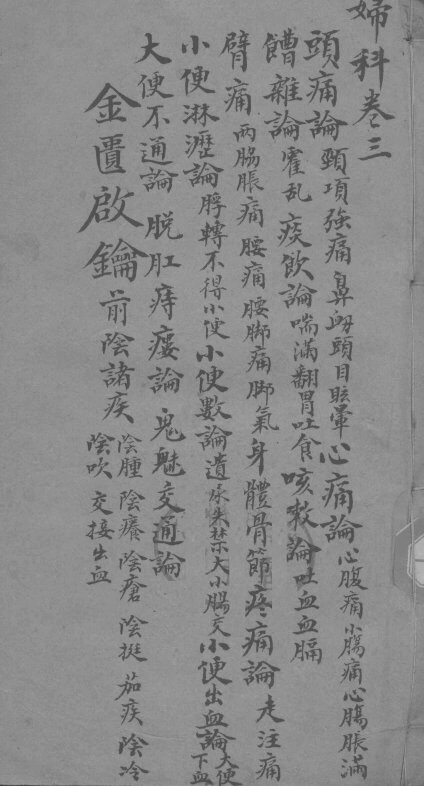 婦科卷三
頭痛論 頸項強痛 鼻衄頭目眩暈 心痛論 心腹痛小腸痛心腸脹滿
饐雜論 霍乱 痰飲論 喘滿翻胃吐食 咳敕論 吐血血膈
臂痛 兩脇脹痛 腰痛腰脚痛脚氣 身體骨節疼痛論 走注痛
小便淋瀝論 脬轉不得小便 小便數論 遺尿失禁大小腸交 小便出血論 大便下血
大便不通論 脱肛痔瘻論 鬼魅交通論
金匱啟鑰 前陰諸疾 陰腫 陰癢 陰瘡 陰挺 茄疾 陰冷
陰吹 交接出血